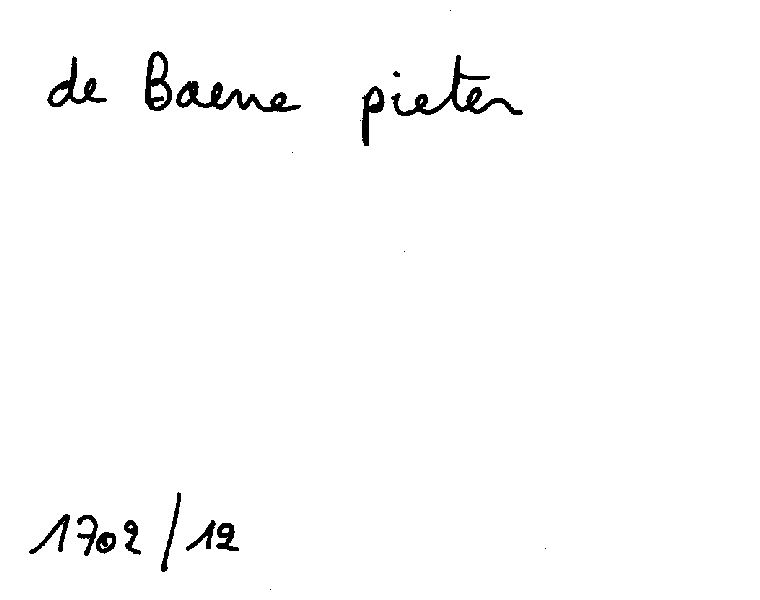 de Baene pieter
1702/12